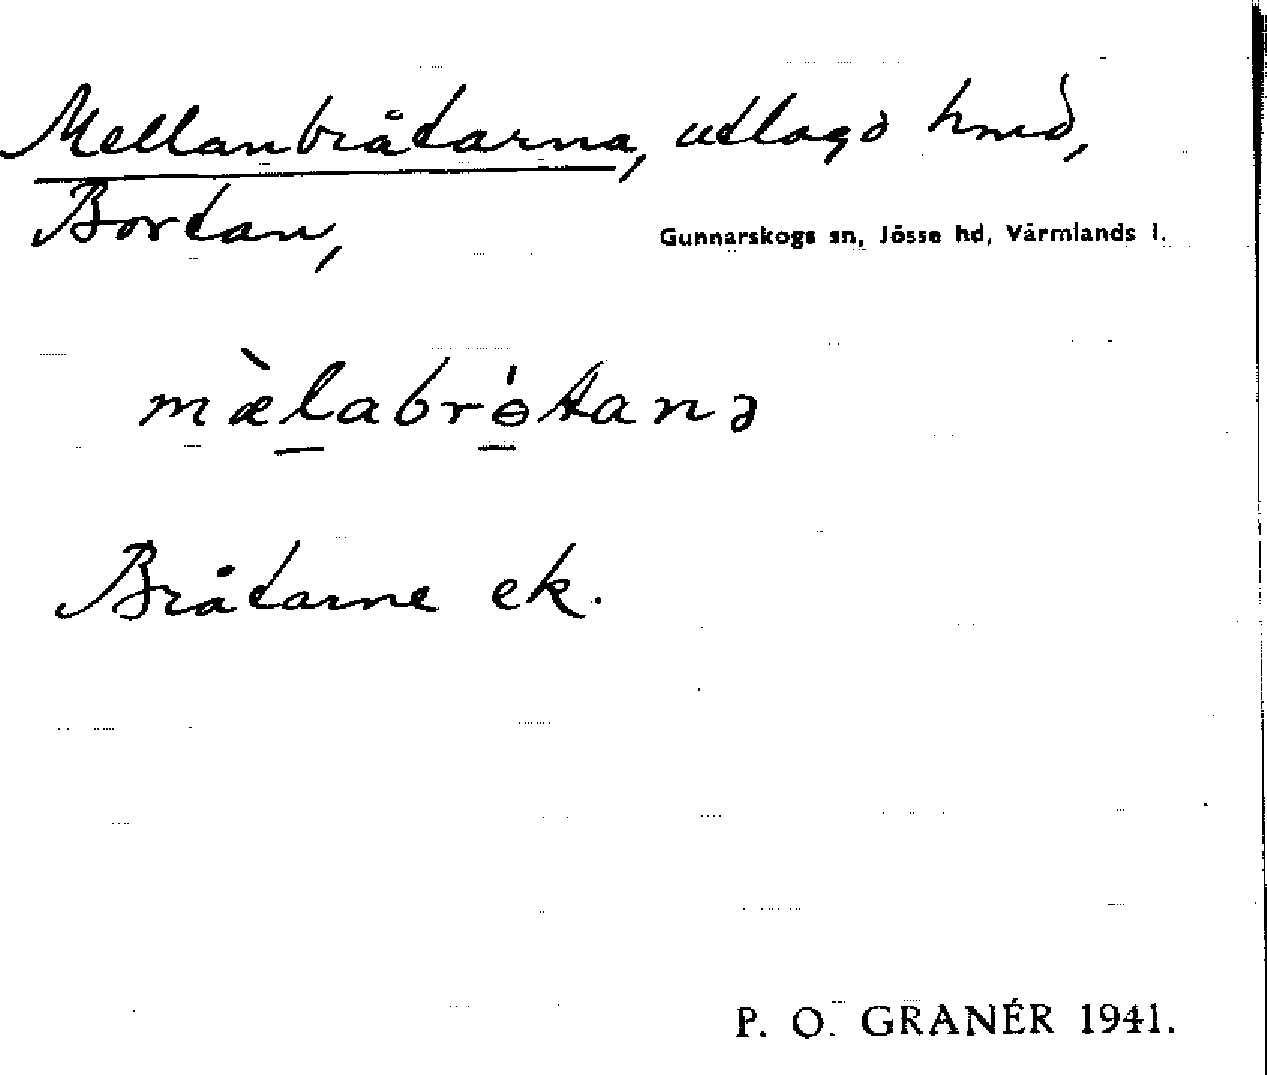 Mellanbråtarna, utlagd hmd,
Bortan,
Gunnarskogs sn, Jösse hd, Värmlands l.
mæ̀labrɵ́tanə
Bråtarne ek.
P. O. GRANÉR 1941.